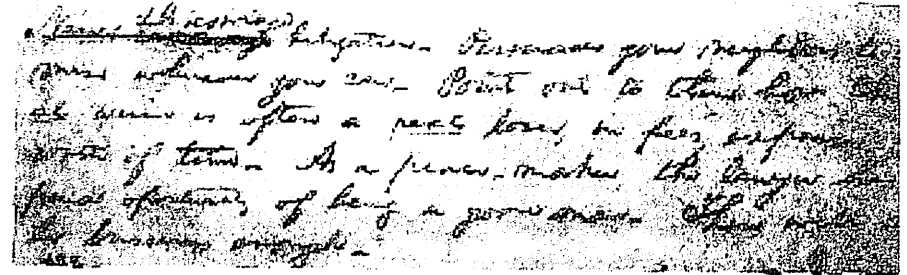 Discourage litigation. Persuade your neighbors to
promise whenever you can. Point out to them how the
winner is often a real loser, in fees, expenses
waste of time. As a peace-maker the lawyer
opertunity of being a good man. There will
be business enough.